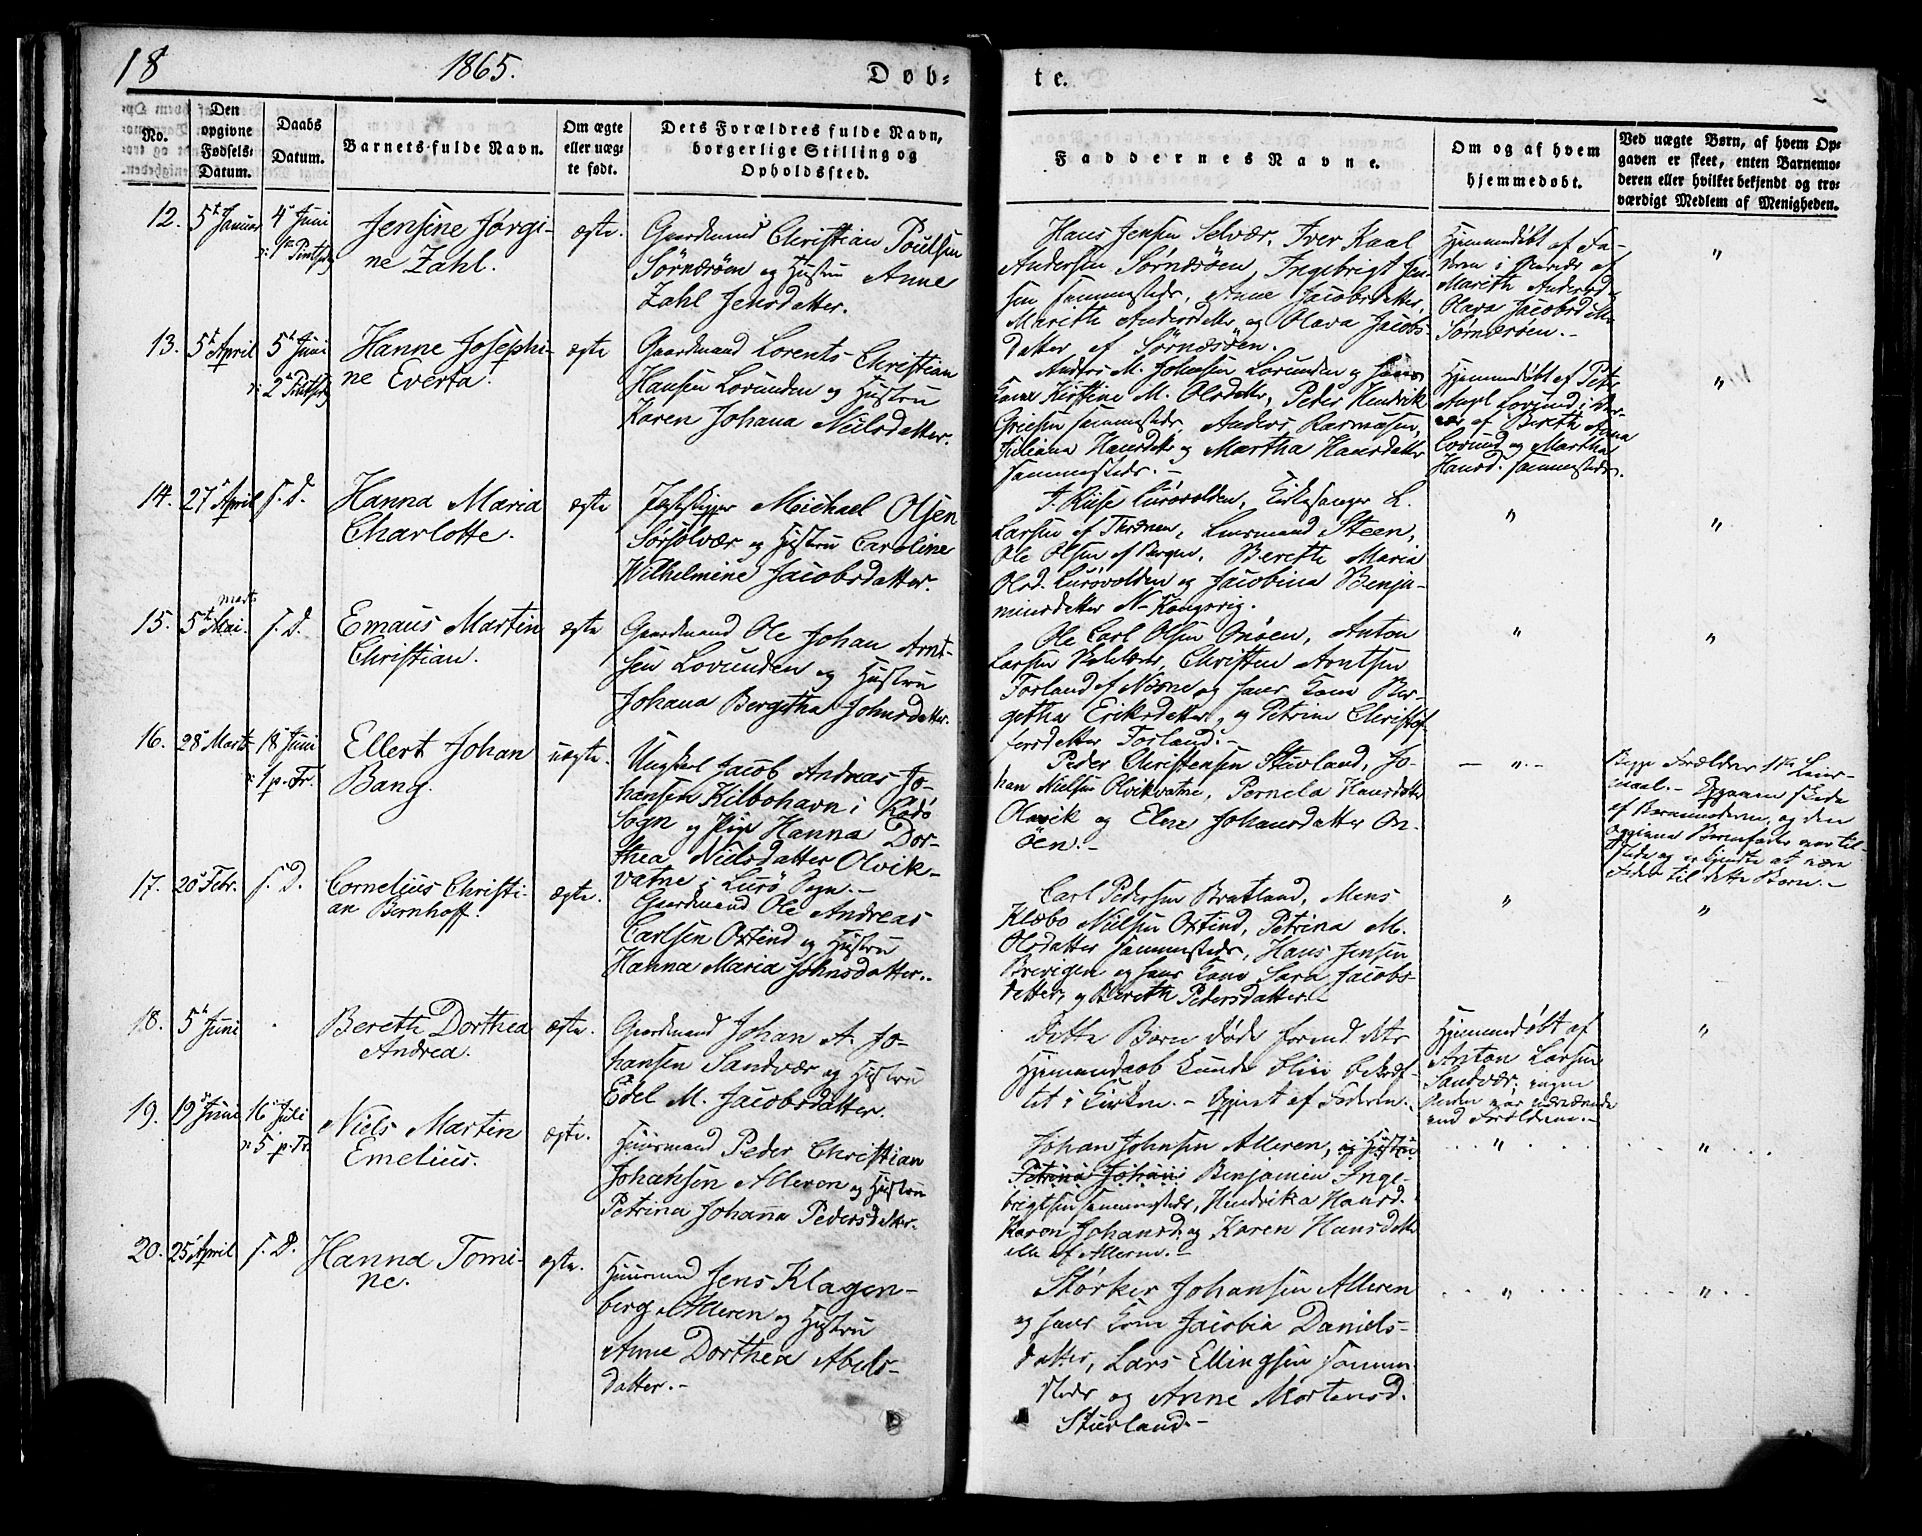 18
1865.
Døb-
te.
No.
Den
opgivne
Fødsels-
Datum.
Daabs
Datum.
Barnets fulde Navn.
Om ægte
eller uæg-
te født.
Dets Forældres fulde Navn,
borgerlige Stilling og
Opholdssted.
Faddernes Navne.
Om og af hvem
hjemmedøbt.
Ved uægte Børn, af hvem Op-
gaven er skeet, enten Barnemo-
deren eller hvilket bekjendt og tro-
værdigt Medlem af Menigheden.
12.
5t Januar
4d Juni
Jensine Jørgi-
ne Zahl.
ægte.
Gaardmand Christian Poulsen
Sørnæsøen og Hustru Anne
Zahl Jensdatter.
Hans Jensen Selvær, Iver Kaal
Andersen Sørnæsøen, Ingebrigt Jen-
sen sammesteds, Anne Jacobsdatter,
Marith Andersdatter og Olava Jacobs-
datter af Sørnæsøen.
Hjemmedøbt af Fa-
deren i Nærvær af
Marith Andersd.
Olava Jacobsdatter
Sørnæsøen.-
"
13.
5t April
5d Juni
Hanne Josephi-
ne Everta.
ægte
Gaardmand Lorents Christian
Hansen Lovunden og Hustru
Karen Johana Nielsdatter.
Anders M. Johnsen Lovunden og hans
Kone Kirstine M. Olsdatter, Peder Hendrik
sammesteds, Anders Rasmusen,
Juliana Hansdatter og Martha Hansdatter
sammesteds.-
Hjemmedøbt af Peter
Lovund, i Nær-
vær af Berith Anna
Lovund og Martha
Hansd. sammesteds.
"
14.
27d April
s. D.
Hanna Maria
Charlotte.
ægte
Jægtskipper Meichael Olsen
Sørsølvær og Hustru Caroline
Wilhelmine Jacobsdatter.
Lurøvolden, Kirkesanger L.
Larsen af Thrænen, Steen,
Ole Olsen af Bergen, Berethe Maria
Olsd. Lurøvolden og Jacobina Benja-
minsdatter N- Kongsvig.
"
"
15.
marts
5t Mai.
s. D.
Emaus Martin
Christian.
ægte
Gaardmand Ole Johan Arnt-
sen Lovunden og Hustru
Johana Bergitha Johnsdatter.
Ole Carl Olsen Onøen, Anton
Larsen Christen Arntsen
Forland af Næsne og hans Kone Ber-
getha Eriksdatter, og Petrine Christof-
fersdatter Forland.-
"
"
16.
28d Marts
18d Juni
1 p. Tr.
Ellert Johan
Bang.
uægte.
Ungkarl Jacob Andreas Jo-
hansen Kilbohavn i Rødø
Sogn og Pige Hanna Dor-
thea Nielsdatter Olvik-
vatne i Lurø Sogn.-
Peder Christensen Stuvland, Jo-
han Nielsen Olvikvatne, Pernela Hansdatter
Olavik og Elen Johansdatter On-
øen.-
- " -
Begge Forældres 1ste Leier-
maal.- Opgaven skede
af Barnemoderen, og den
opgivne Barnefader var til-
stede og erkjendte at være
Fader til dette Barn.-
17.
20d Febr.
s. D.
Cornelius Christi-
an Bernhoff.
ægte.
Gaardmand Ole Andreas
Carlsen Oxtind og Hustru
Hanna Maria Johnsdatter..
Carl Pedersen Bratland, Mens
Klæbo Nielsen Oxtind, Petrina M.
Olsdatter sammesteds, Hans Jensen
Brevigen og hans Kone Sara Jacobs-
datter, og Berith Pedersdatter.-
"
"
18.
5d Juni
Bereth Dorthea
Andrea.
ægte.
Gaardmand Johan A. Jo-
hansen Sandvær og Hustru
Edel M. Jacobsdatter.
dette Barn døde forend dets
Hjemmedaab kunde blive bekræf-
tet i Kirken.- Opgivet af Faderen.
Hjemmedøbt af
Anton Larsen
Sandvær; ingen
var nærværende
end Forældrene.-
"
19.
19d Juni
16d Juli
5 p. Tr.
Niels Martin
Emelius.
ægte.
Huusmand Peder Christian
Johansen Alleren og Hustru
Petrina Johana Pedersdatter.
Johan Johnsen Alleren, og Hustru
Petrina Johana Benjamin Inge-
brigtsen sammesteds, Hendrika Hansd.
Karen Johansd. og Karen Hansdatter
alle af Alleren.-
"
"
20.
25d April
s. D.
Hanna Tomi-
ne.
ægte.
Huusmand Jens Klagen-
berg Alleren og Hustru
Anne Dorthea Abels-
datter.-
Størker Johansen Alleren
og hans Kone Jacobia Daniels-
datter, Lars Ellingsen samme-
steds og Anne Mortensd.
Stuvland.-
"
"